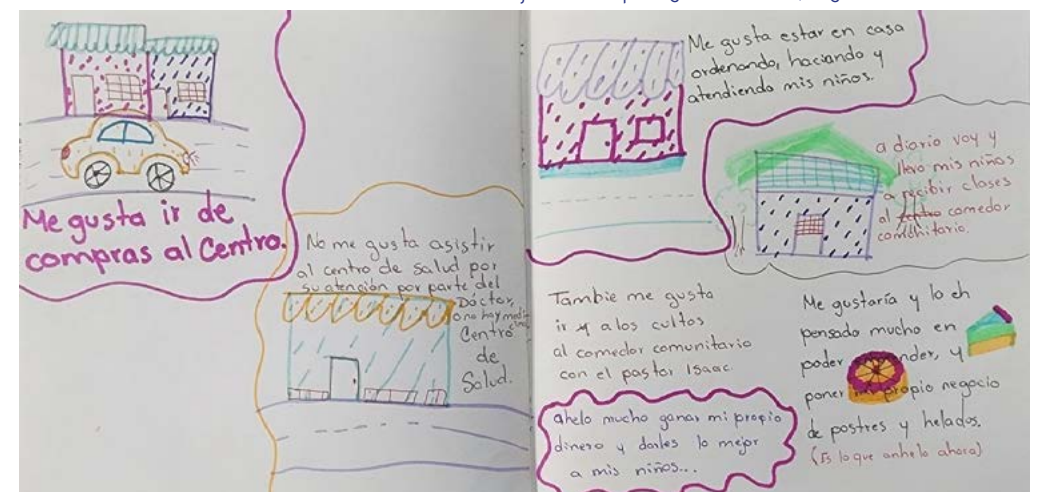 Me gusta ir de
compras al Centro.
No me gusta asistir
al centro de salud por
su atención por parte del
Dóctor,
o no hay
Centro
de
Salud.
Me gusta estar en casa
ordenando, haciando y
atendiendo mis niños.
a diario voy y
llevo mis niños
a recibir clases
al comedor
comunitario.
Tambie me gusta
ir y a los cultos
al comedor comunitario
con el pastor Isaac.
ahelo mucho ganar mi propio
dinero y darles lo mejor
a mis niños...
Me gustaría y lo eh
pensado mucho en
poder nder, y
poner mi propio negocio
de postres y helados.
(Es lo que anhelo ahora)